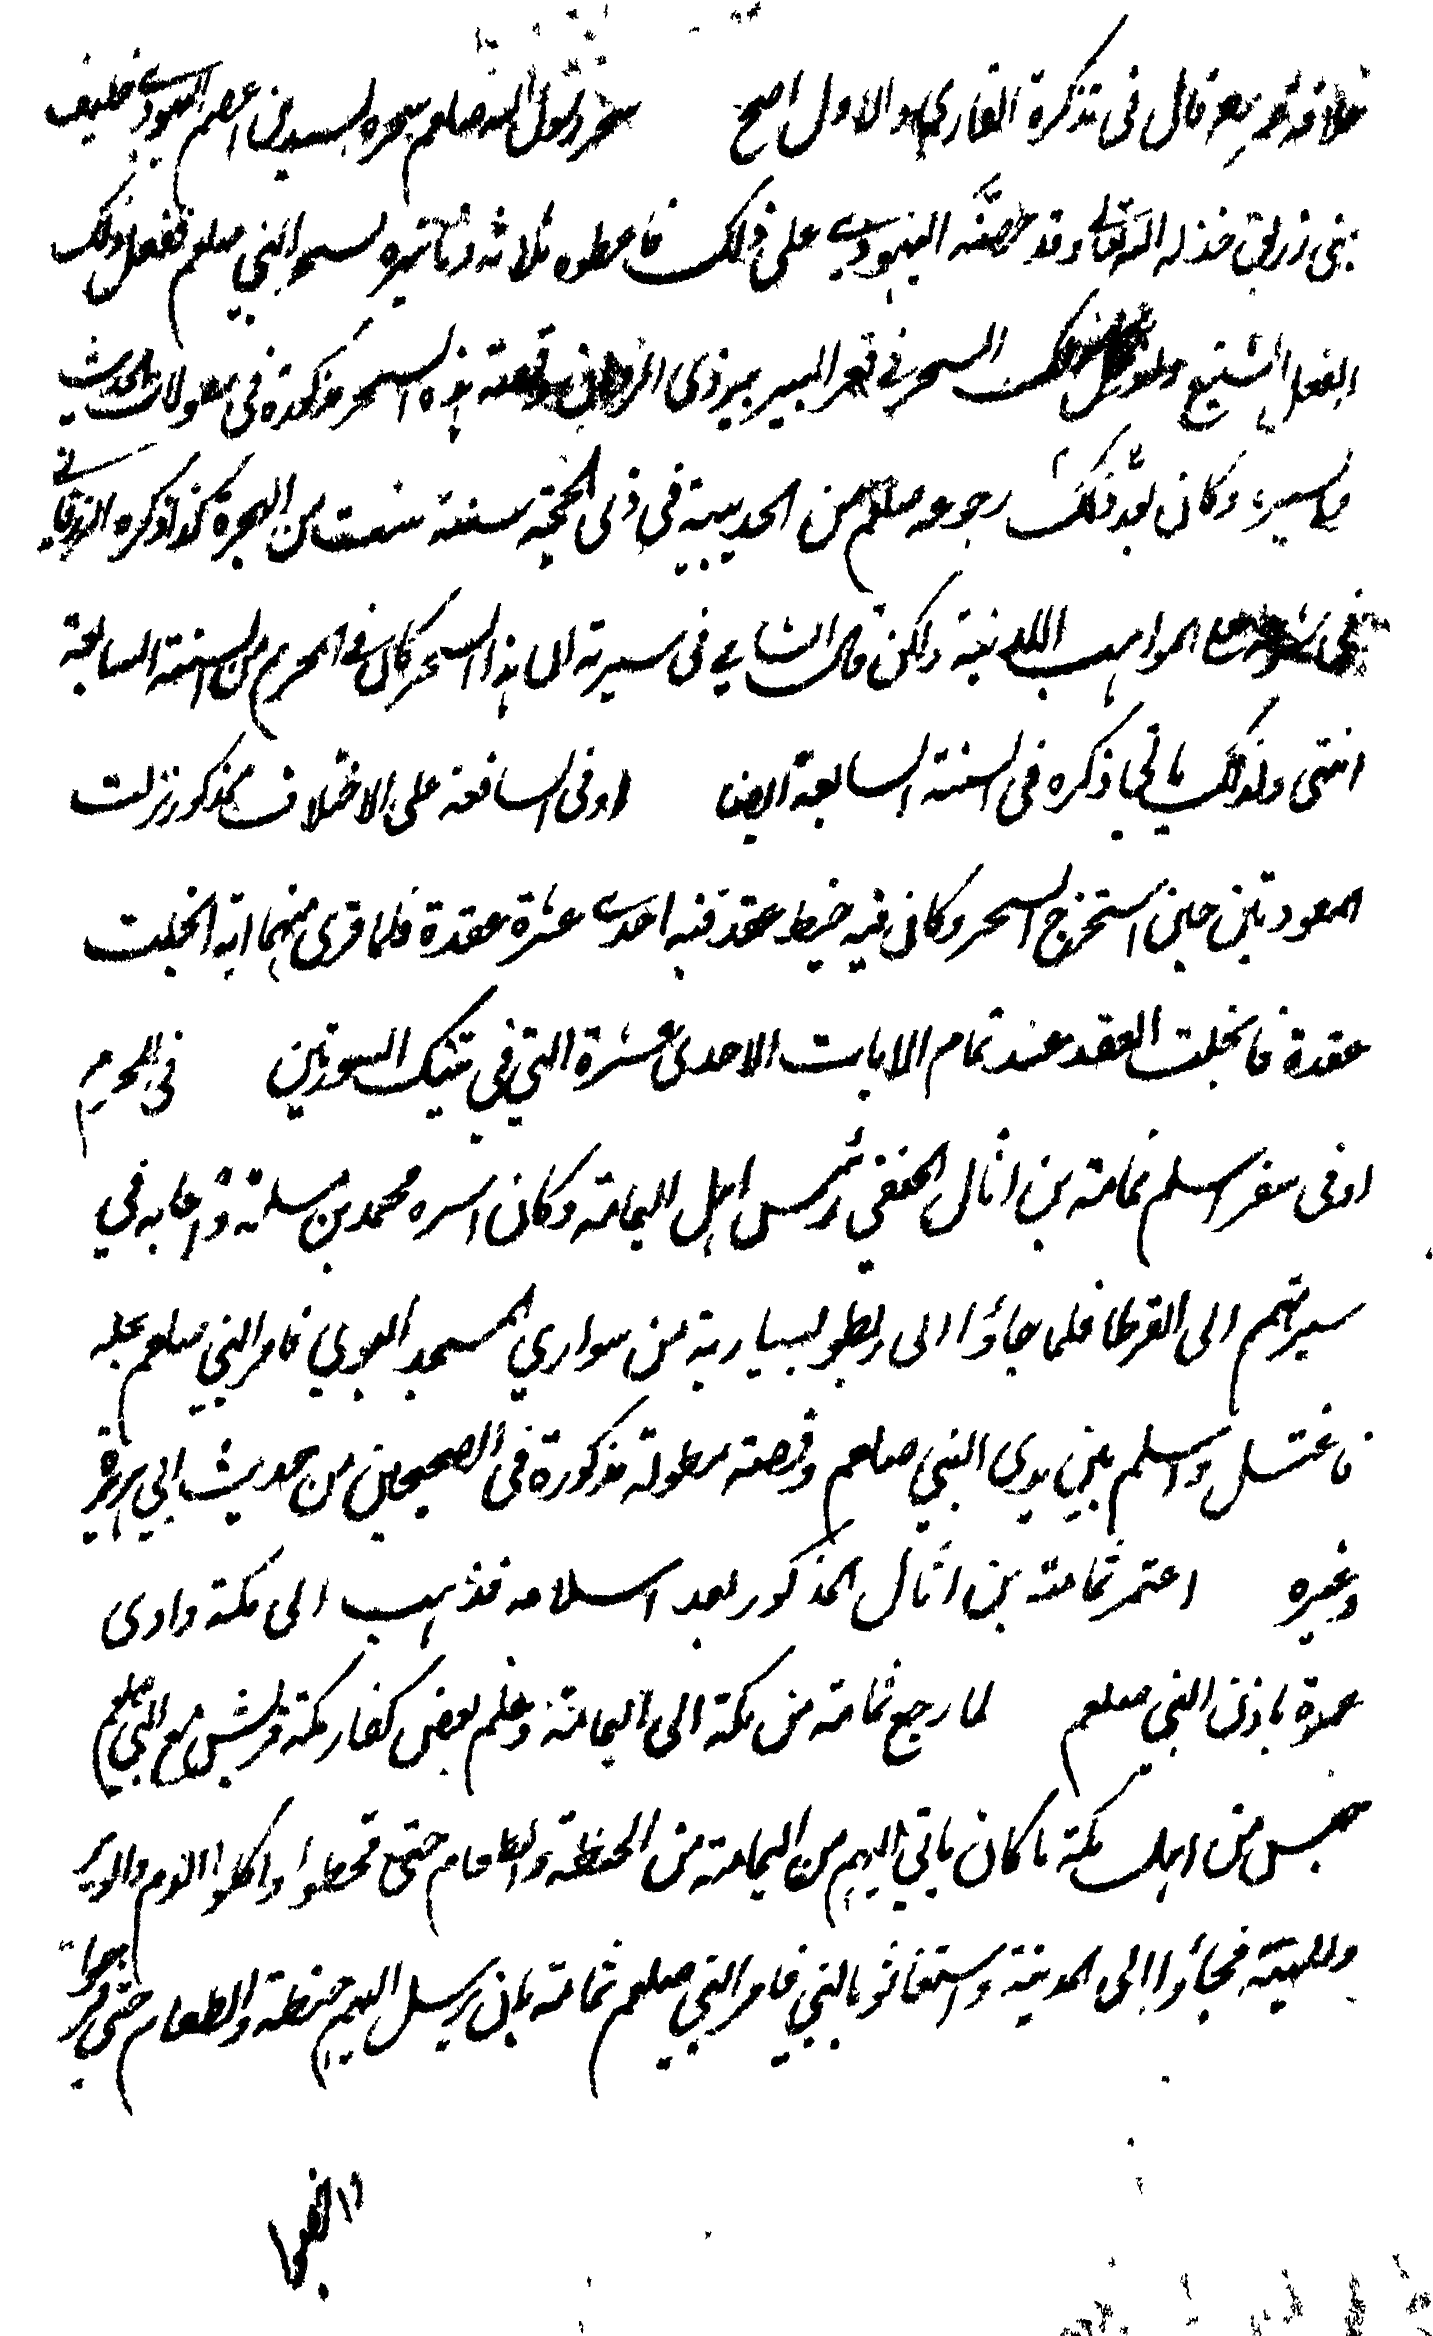 خلافة عمر قال فى تذكرة القاري والاول اصح سحر رسول الله صلعم سحره لبيد بن اعصم اليهودي حليف
بنى زريق خذله الله تعالى وقد حضته اليهودي على ذلك فاعطوه ثلاثة دنانير ليسحر النبي صلعم ففعل ذلك
الفعل الشنيع السحر في قعر البير بير ذى وقصة هذه السحر مذكورة فى مطولات الحديث
والسير وكان بعد ذلك رجوعه صلعم من الحديبية في ذى الحجة سنة ست من الهجرة كذا ذكره الزرقاني
في شرحه على المواهب اللدنية ولكن قال الشامي فى سيرته ان هذا السحر كان في المحرم من السنة السابعة
انتهى ولذلك ياتي ذكره فى السنة السابعة ايضا او فى السابعة على الاختلاف مذكور نزلت
المعوذتين حين استخرج السحر وكان فيه خيط عقد فيه احدى عشرة عقدة فلما قرى منهما اية انحلت
عقدة فانحلت العقد عند تمام الايات الاحدى عشرة التي في تينك السورتين فى المحرم
او فى صفر اسلم ثمامة بن اثال الحنفي رئيس اهل اليمامة وكان اسره محمد بن مسلمة واصحابه في
سيرتهم الى القرطا فلما جاؤا الى ربطو بسارية من سواري المسجد النبوي فامر النبي صلعم بحله
فاغتسل واسلم بين يدى النبي صلعم وقصته مطولة مذكورة فى الصحيحين من حديث ابي هريرة
وغيره اعتمر ثمامة بن اثال المذكور بعد اسلامه فذهب الى مكة وادى
عمرة باذن النبي صلعم لما رجع ثمامة من مكة الى اليمامة وعلم بعض كفار مكة قريش مع النبي صلعم
حبس من اهل مكة ما كان ياتي اليهم من اليمامة من الحنطة والطعام حتى قحطوا واكلوا الدم والوبر
والميتة فجاؤا الى المدينة واستغاثو بالنبي فامر النبي صلعم ثمامة بان يرسل اليهم حنطة والطعام حتى